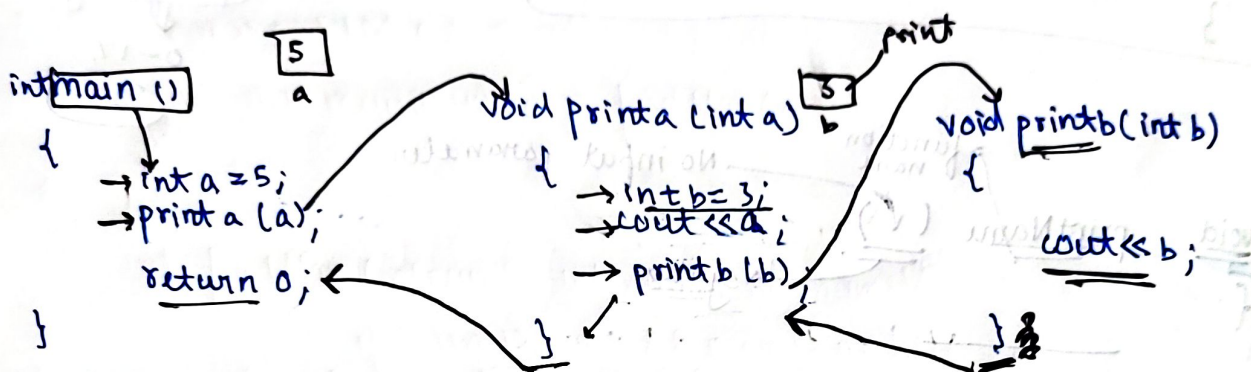 5
a
int main ()
{
→ int a = 5;
→ print a (a);
return 0;
}
void print a (int a)
{
→ int b = 3;
→ cout << a ;
→ print b (b) ;
}
print
3
b
void print b (int b)
{
cout << b ;
}